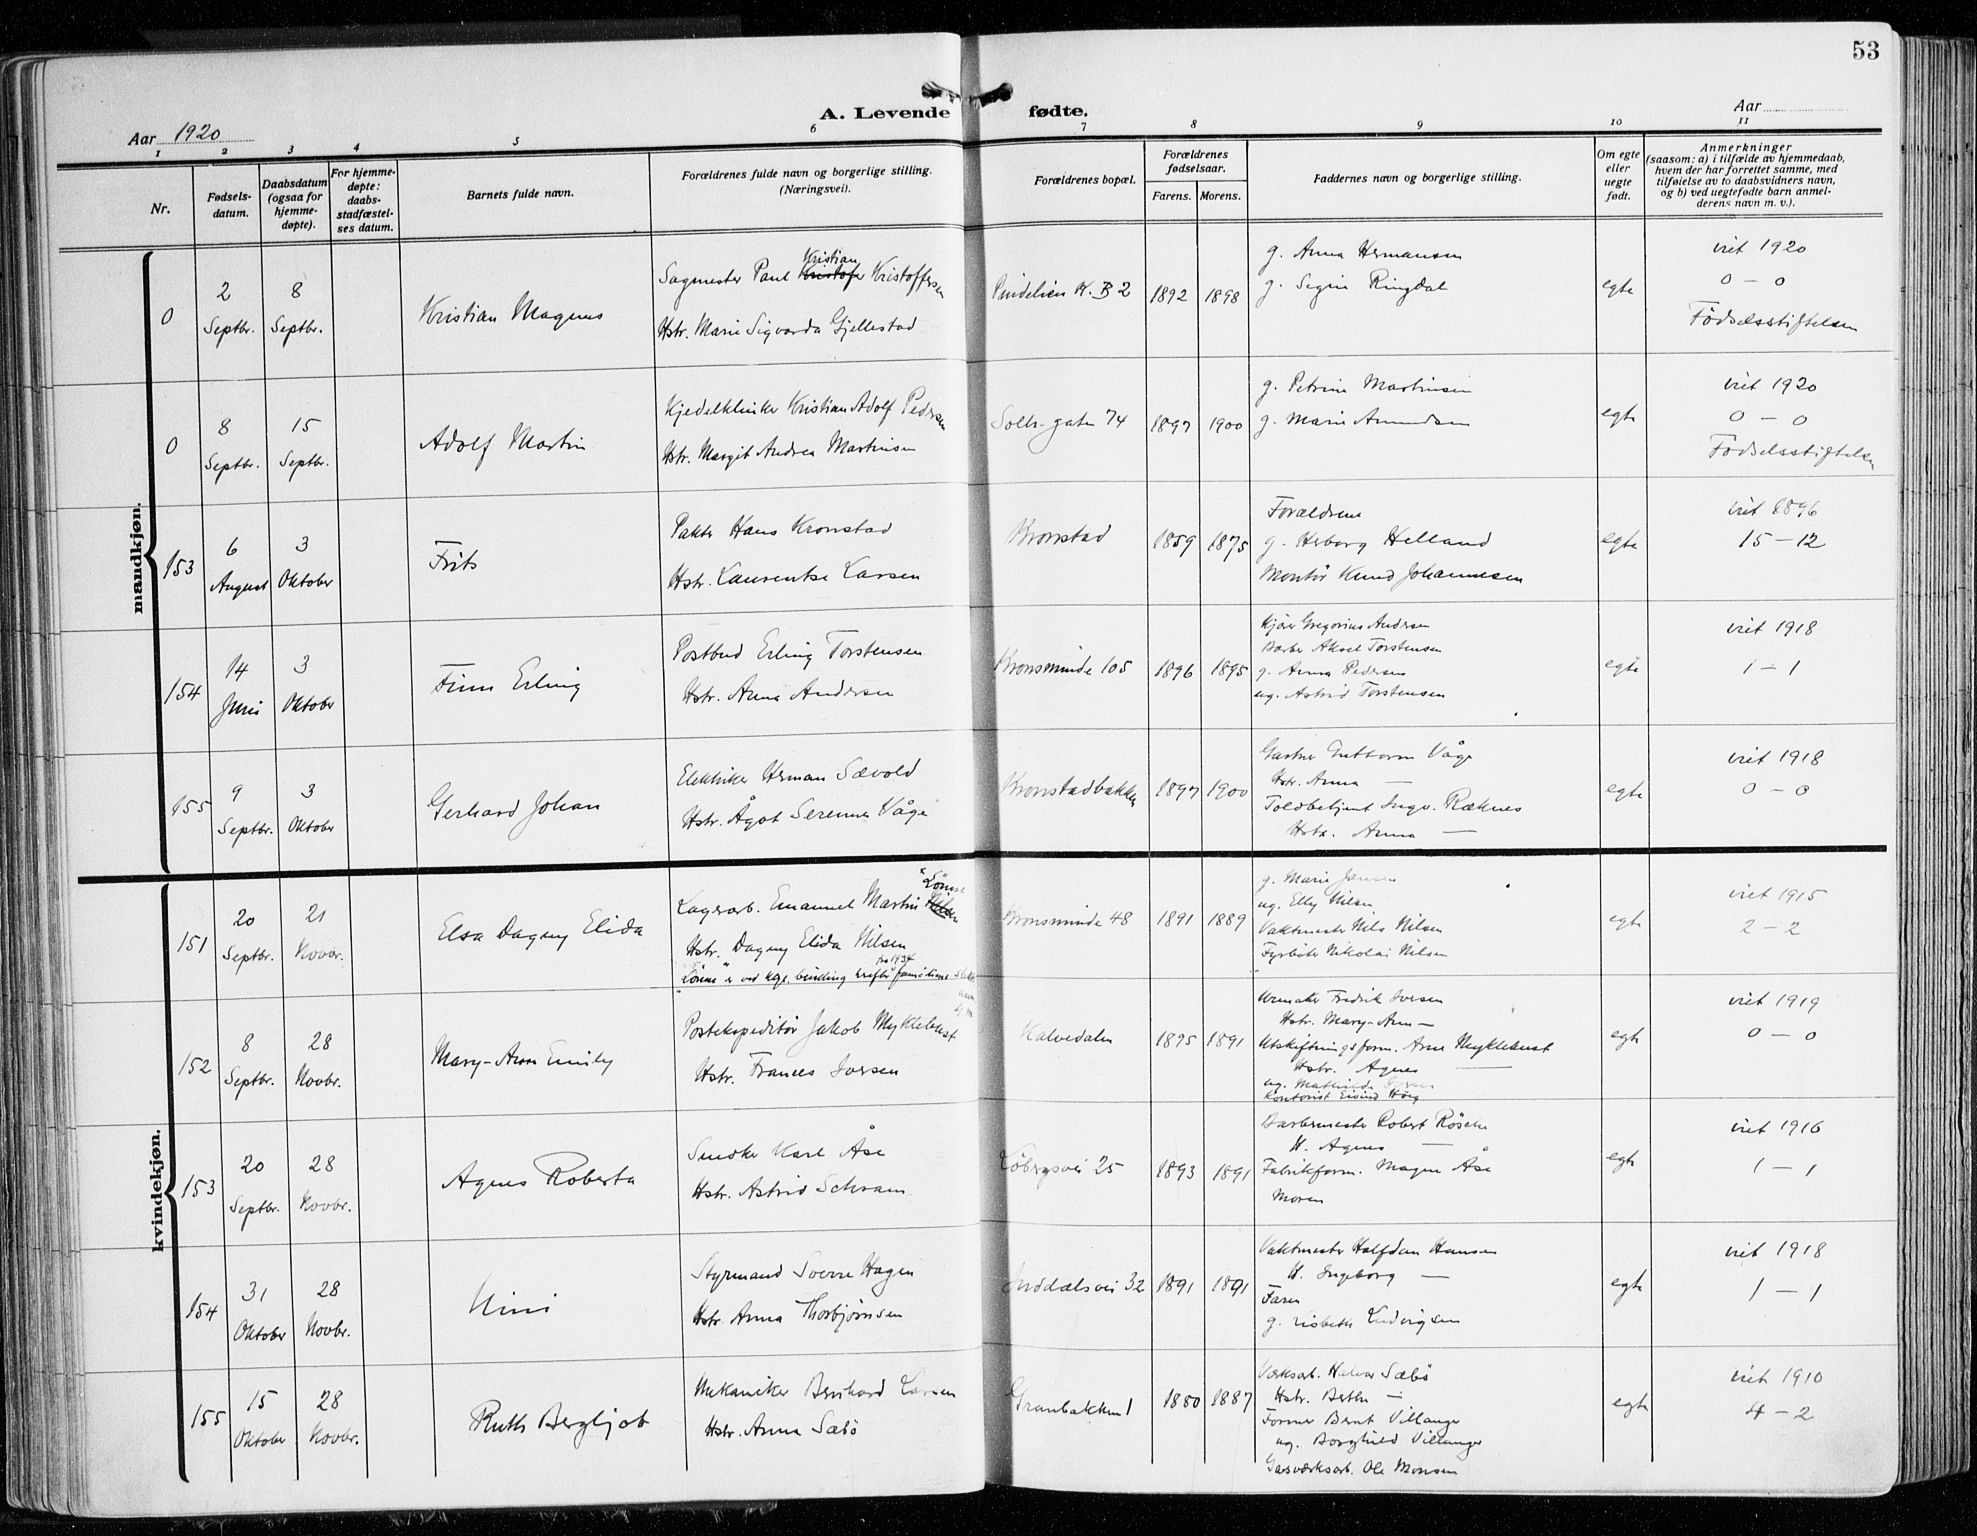 53
A. Levende fødte.
Aar 1920
Aar
1 2 3 4 5 6 7 8 9 10 11
Nr.
Fødsels-
datum.
Daabsdatum
(ogsaa for
hjemme-
døpte).
For hjemme-
døpte:
daabs-
stadfæstel-
ses datum.
Barnets fulde navn.
Forældrenes fulde navn og borgerlige stilling.
(Næringsvei).
Forældrenes bopæl.
Forældrenes
fødselsaar.
Farens. Morens.
Faddernes navn og borgerlige stilling.
Om egte
eller
uegte
født.
Anmerkninger
(saasom: a) i tilfælde av hjemmedaab,
hvem der har forrettet samme, med
tilføielse av to daabsvidners navn,
og b) ved uegtefødte barn anmel-
derens navn m. v.).
mandkjøn.
0
2 Septbr.
8 Septbr.
Kristian Magnus
Kristian
Sagmester Paul Kristofer Kristoffersen
Hstr. Marie Sigvarda Gjellestad
K. B 2
1892 1898
g. Anna Hermansen
g. Ringdal
egte
viet 1920
0 – 0
Fødselsstiftelsen
0
8 Septbr.
15 Septbr.
Adolf Martin
Kjedelklinker Kristian Adolf Pedersen
Hstr. Margit Andrea Martinsen
Solh.gaten 74
1897 1900
g. Petrine Martinsen
g. Marie Amundsen
egte
viet 1920
0 – 0
Fødselsstiftelsen
153
6 August
3 Oktober
Frits
Pakter Hans Kronstad
Hstr. Laurentse Larsen
Kronstad
1859 1875
Forældrene
g. Herborg Helland
Montør Knud Johannesen
egte
viet 1896
15 – 12
154
14 Juni
3 Oktober
Finn Erling
Postbud Erling Torstensen
Hstr. Anna Andersen
Kronsminde 105
1896 1895
Kjører Gregorius Andersen
Barber Aksel Torstensen
g. Anna Pedersen
ug. Astrid Torstensen
egte
viet 1918
1 – 1
155
9 Septbr.
3 Oktober
Gerhard Johan
Elektriker Herman Sævold
Hstr. Ågot Serenne Våge
Kronstadbakken
1897 1900
Gartner Guttorm Våge
Hstr. Anna —
Toldbetjent Ingv. Røknes
Hstr. Anna —
egte
viet 1918
0 – 0
kvindekjøn.
151
20 Septbr.
21 Novbr.
Elsa Dagny Elida
"Lönne
Lagerarb. Emanuel Martin Nilsen
Hstr. Dagny Elida Nilsen
fra 1934
"Lönne" er ved kgl. bevilling familiens slekts-
navn
Kronsminde 48
1891 1889
g. Marie Jensen
ug. Elly Nilsen
Vaktmester Nils Nilsen
Fyrbøter Nikolai Nilsen
egte
viet 1915
2 – 2
152
8 Septbr.
28 Novbr.
Mary-Ann Emily
Postekspeditør Jakob Myklebust
Hstr. Frances Iversen
Kalvedalen
1895 1891
Urmaker Fredrik Iversen
Hstr. Mary-Ann —
Utskiftningsform. Arne Myklebust
Hstr. Agnes —
ug. Mathilde Iversen
Kontorist Eivind Høeg
egte
viet 1919
0 – 0
153
20 Septbr.
28 Novbr.
Agnes Roberta
Smed Karl Åse
Hstr. Astrid Schram
Løbergsvei 25
1893 1891
Barbermester Robert
H. Agnes —
Fabrikform. Magne Åse
Moren
egte
viet 1916
1 – 1
154
31 Oktober
28 Novbr.
Nini
Styrmand Sverre Hagen
Hstr. Anna Thorbjørnsen
Inddalsvei 32
1891 1891
Vaktmester Halfdan Hansen
H. Ingeborg —
Faren
g. Lisbeth Ludvigsen
egte
viet 1918
1 – 1
155
15 Oktober
28 Novbr.
Ruth Bergljot
Mekaniker Bernhard Larsen
Hstr. Anna Sæbø
Granbakken 1
1880 1887
Værksarb. Halvor Sæbø
Hstr. Berthe —
Former Bernt Villanger
ug. Borghild Villanger
Gasværksarb. Ole Monsen
egte
viet 1910
4 – 2